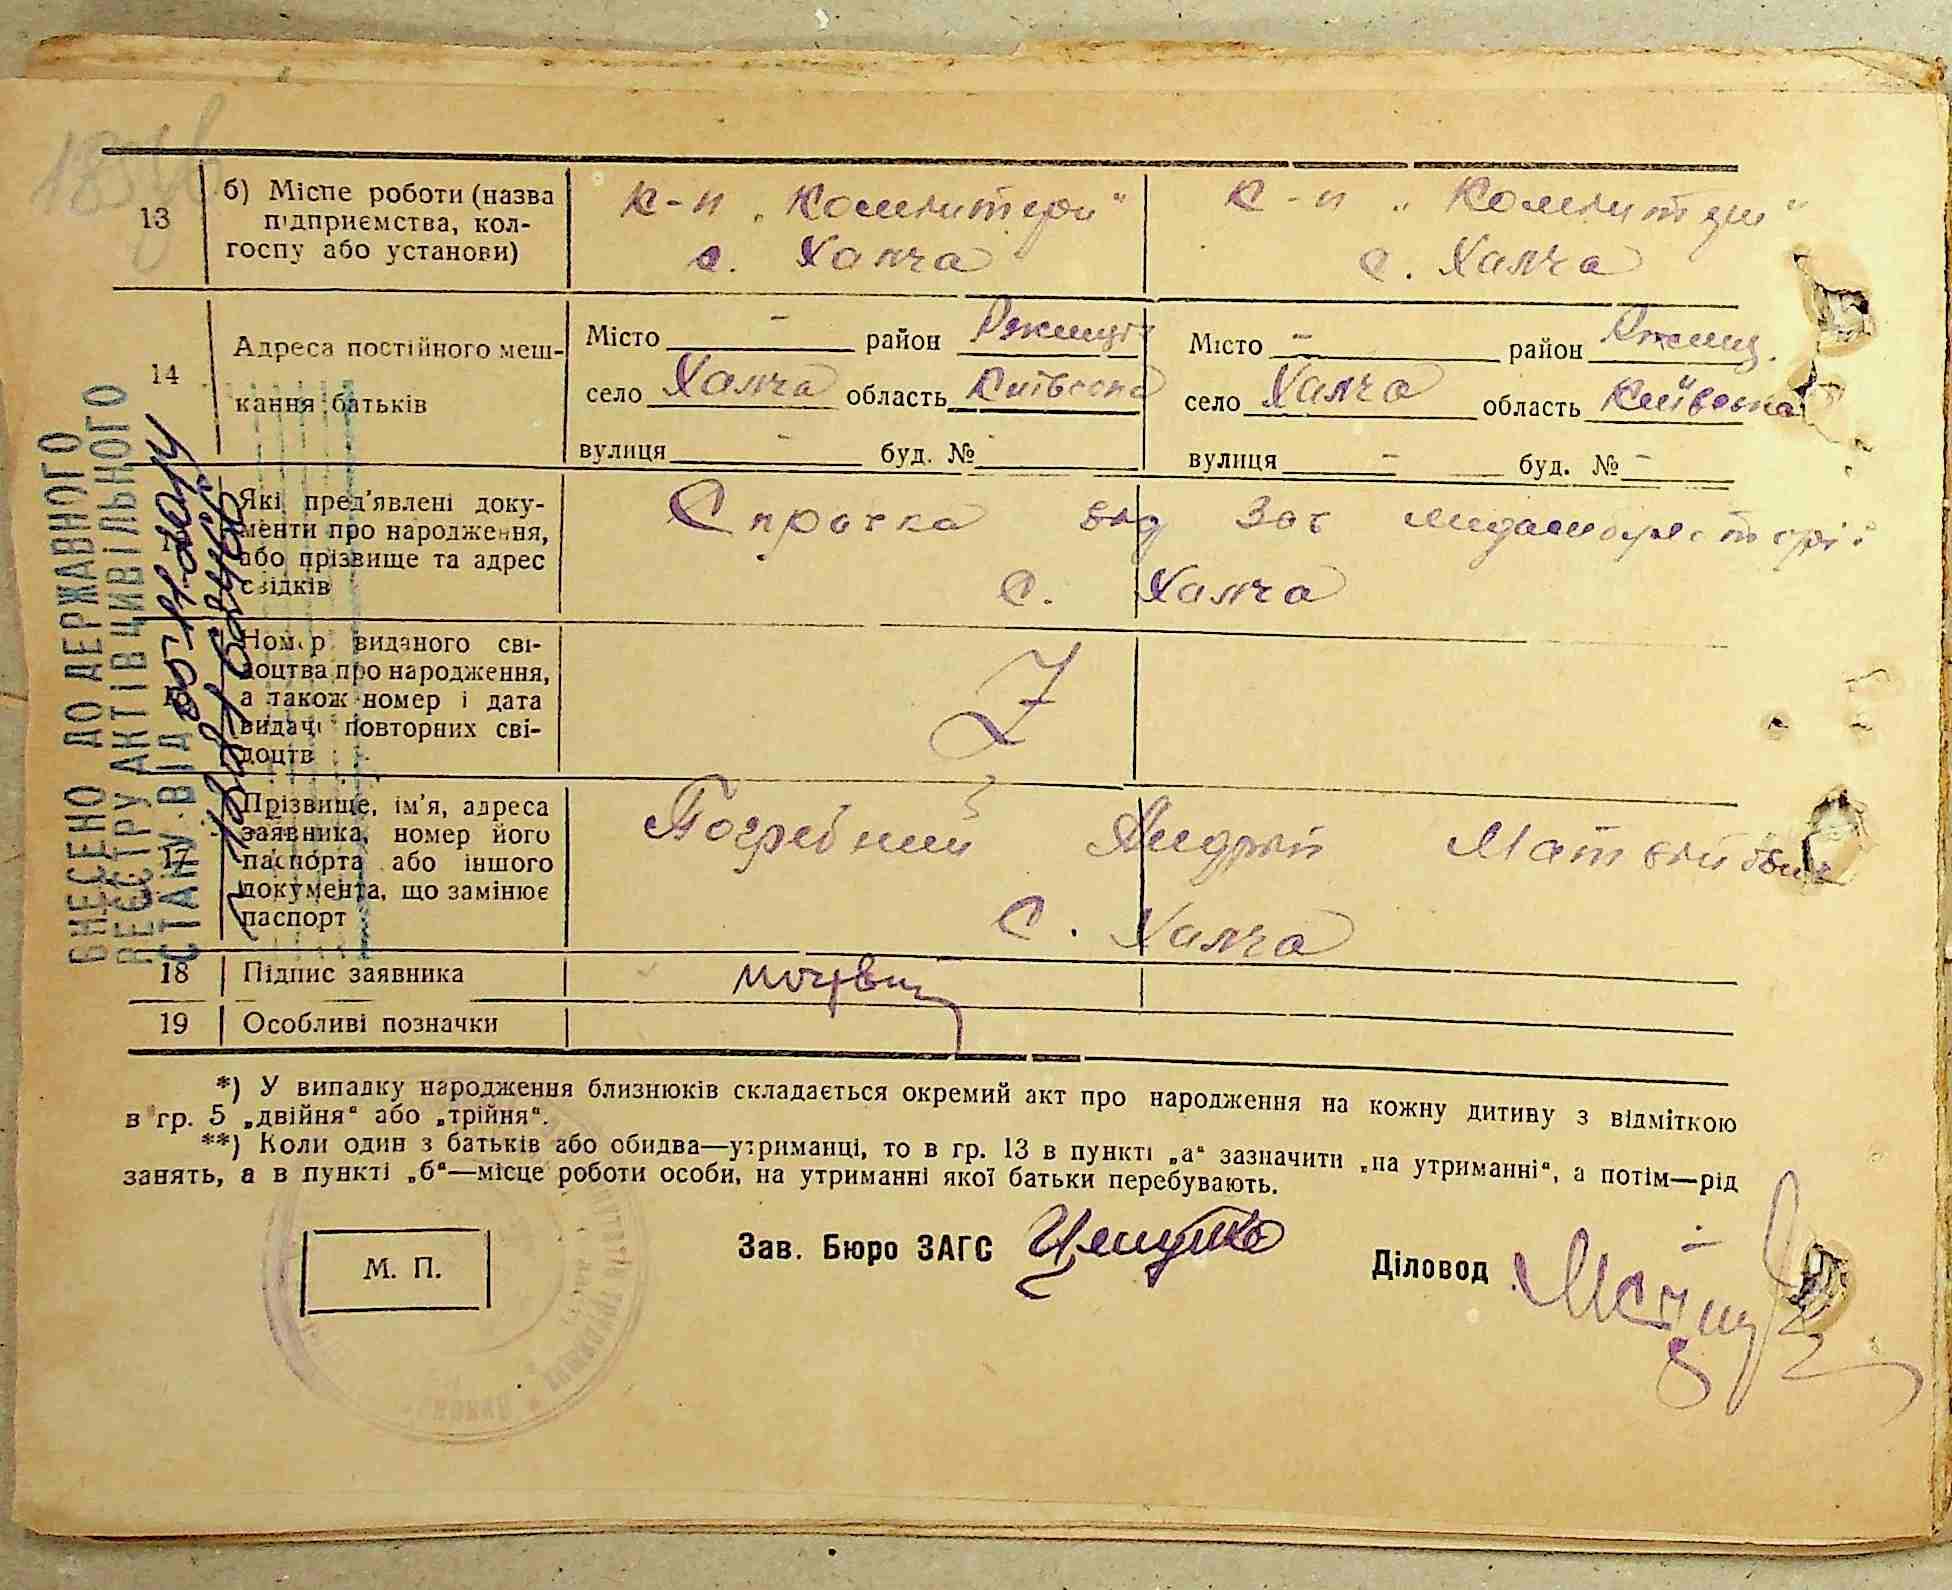 13
б) Місце роботи (назва
підприємства, кол-
госпу або установи)
к-п „Комінтерн“
с. Халча
к-п „Комінтерн“
с. Халча
14
Адреса постійного меш-
кання батьків
Місто - район Ржищів
село Халча область Київська
вулиця - буд. № -
Місто - район Ржищ.
село Халча область Київська
вулиця - буд. № -
Які пред'явлені доку-
менти про народження,
або прізвище та адрес
свідків
Справка від Зав
с. Халча
Номер виданого сві-
доцтва про народження,
а також номер і дата
видачі повторних сві-
доцтв
Z
17
Прізвище, ім'я, адреса
заявника, номер його
паспорта або іншого
документа, що замінює
паспорт
Погребний Андрій Матвійович
с. Халча
18 Підпис заявника
19 Особливі позначки
*) У випадку народження близнюків складається окремий акт про народження на кожну дитину з відміткою
в гр. 5 „двійня“ або „трійня“.
**) Коли один з батьків або обидва—утриманці, то в гр. 13 в пункті „а“ зазначити „на утриманні“, а потім—рід
занять, а в пункті „б“—місце роботи особи, на утриманні якої батьки перебувають.
М. П.
Зав. Бюро ЗАГС
Діловод
ВНЕСЕНО ДО ДЕРЖАВНОГО
РЕЄСТРУ АКТІВ ЦИВІЛЬНОГО
СТАНУ ВІД